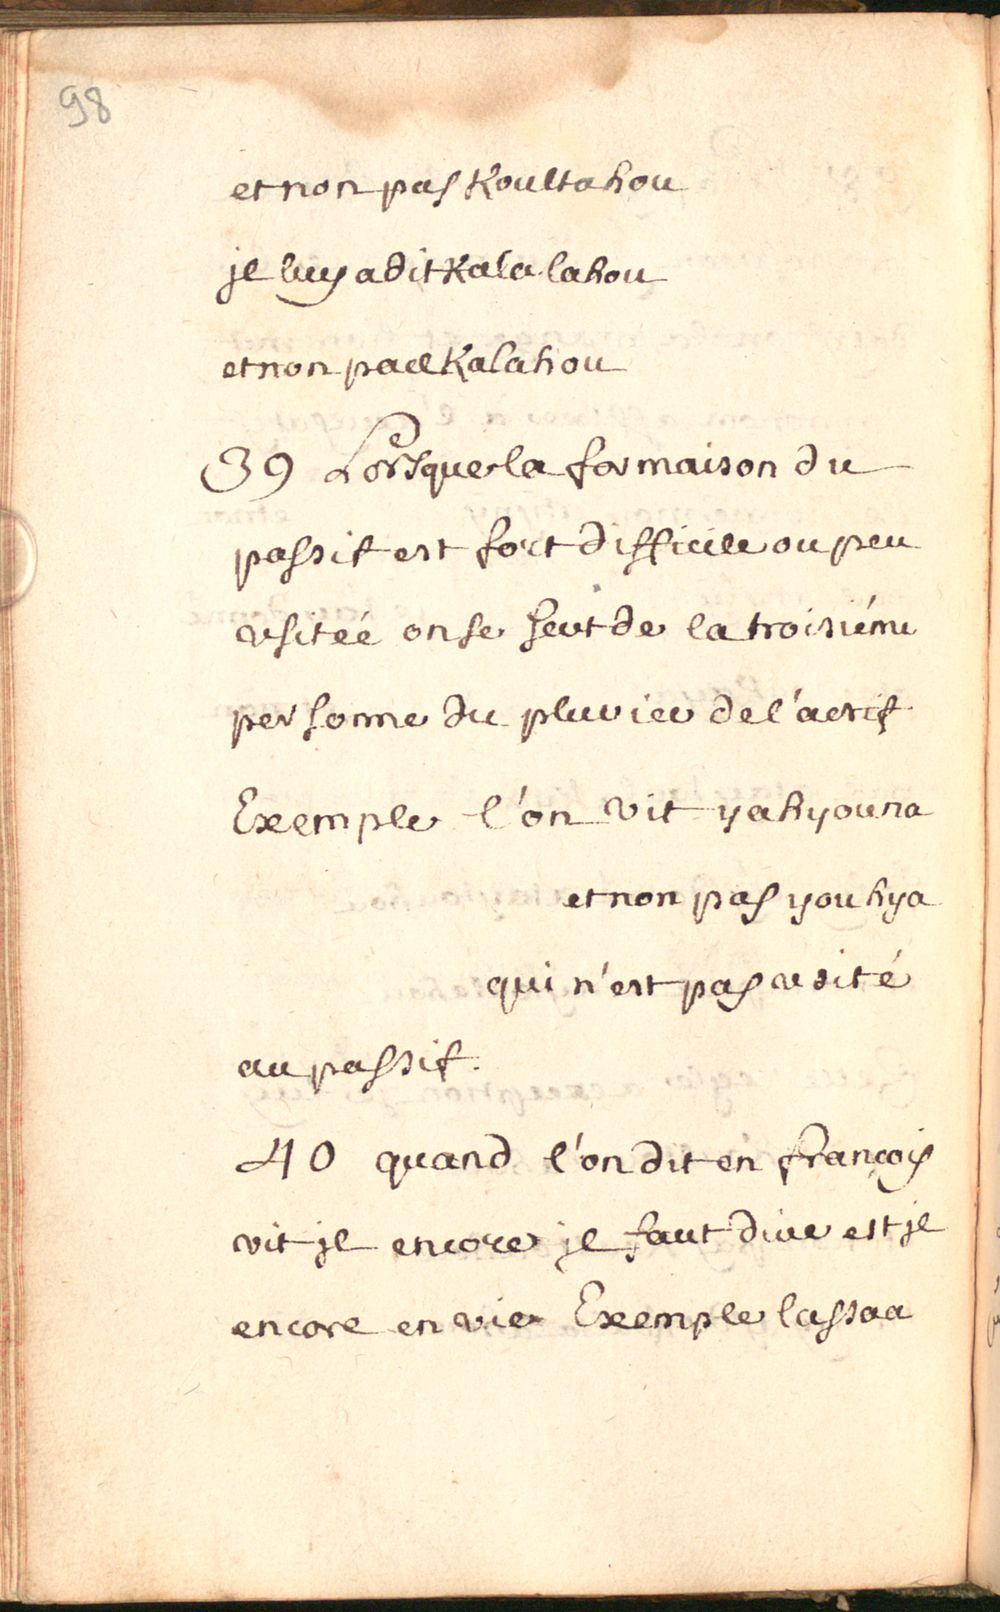 98
et non pas Koultahou
jl luy a dit Kala lahou
et non pas Kalahou
39 Lorsque la formaison du
passif est fort difficile ou peu
usiteé on se sert de la troisiéme
personne du plurier de l'actif
Exemple l'on vit yahyouna
et non pas youhya
qui n'est pas usité
au passif.
40 quand l'on dit en françois
vit jl encore jl faut dire est jl
encore en vie Exemple lassaa